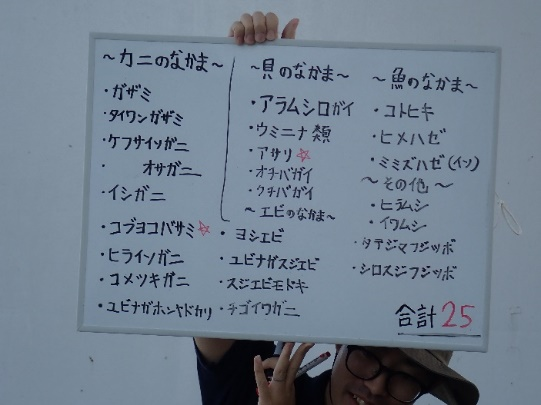 ～カニのなかま～
・ガザミ
・タイワンガザミ
・ケフサイソガニ
・ オサガニ
・イシガニ
・コブヨコバサミ☆
・ヒライソガニ
・コメツキガニ
・ユビナガホンヤドカリ
～貝のなかま～
・アラムシロガイ
・ウミニナ類
・アサリ☆
・オチバガイ
・クチバガイ
～エビのなかま～
・ヨシエビ
・ユビナガスジエビ
・スジエビモドキ
・チゴイワガニ
～魚のなかま～
・コトヒキ
・ヒメハゼ
・ミミズハゼ(イソ)
～その他～
・ヒラムシ
・イワムシ
・タテジマフジツボ
・シロスジフジツボ
合計25